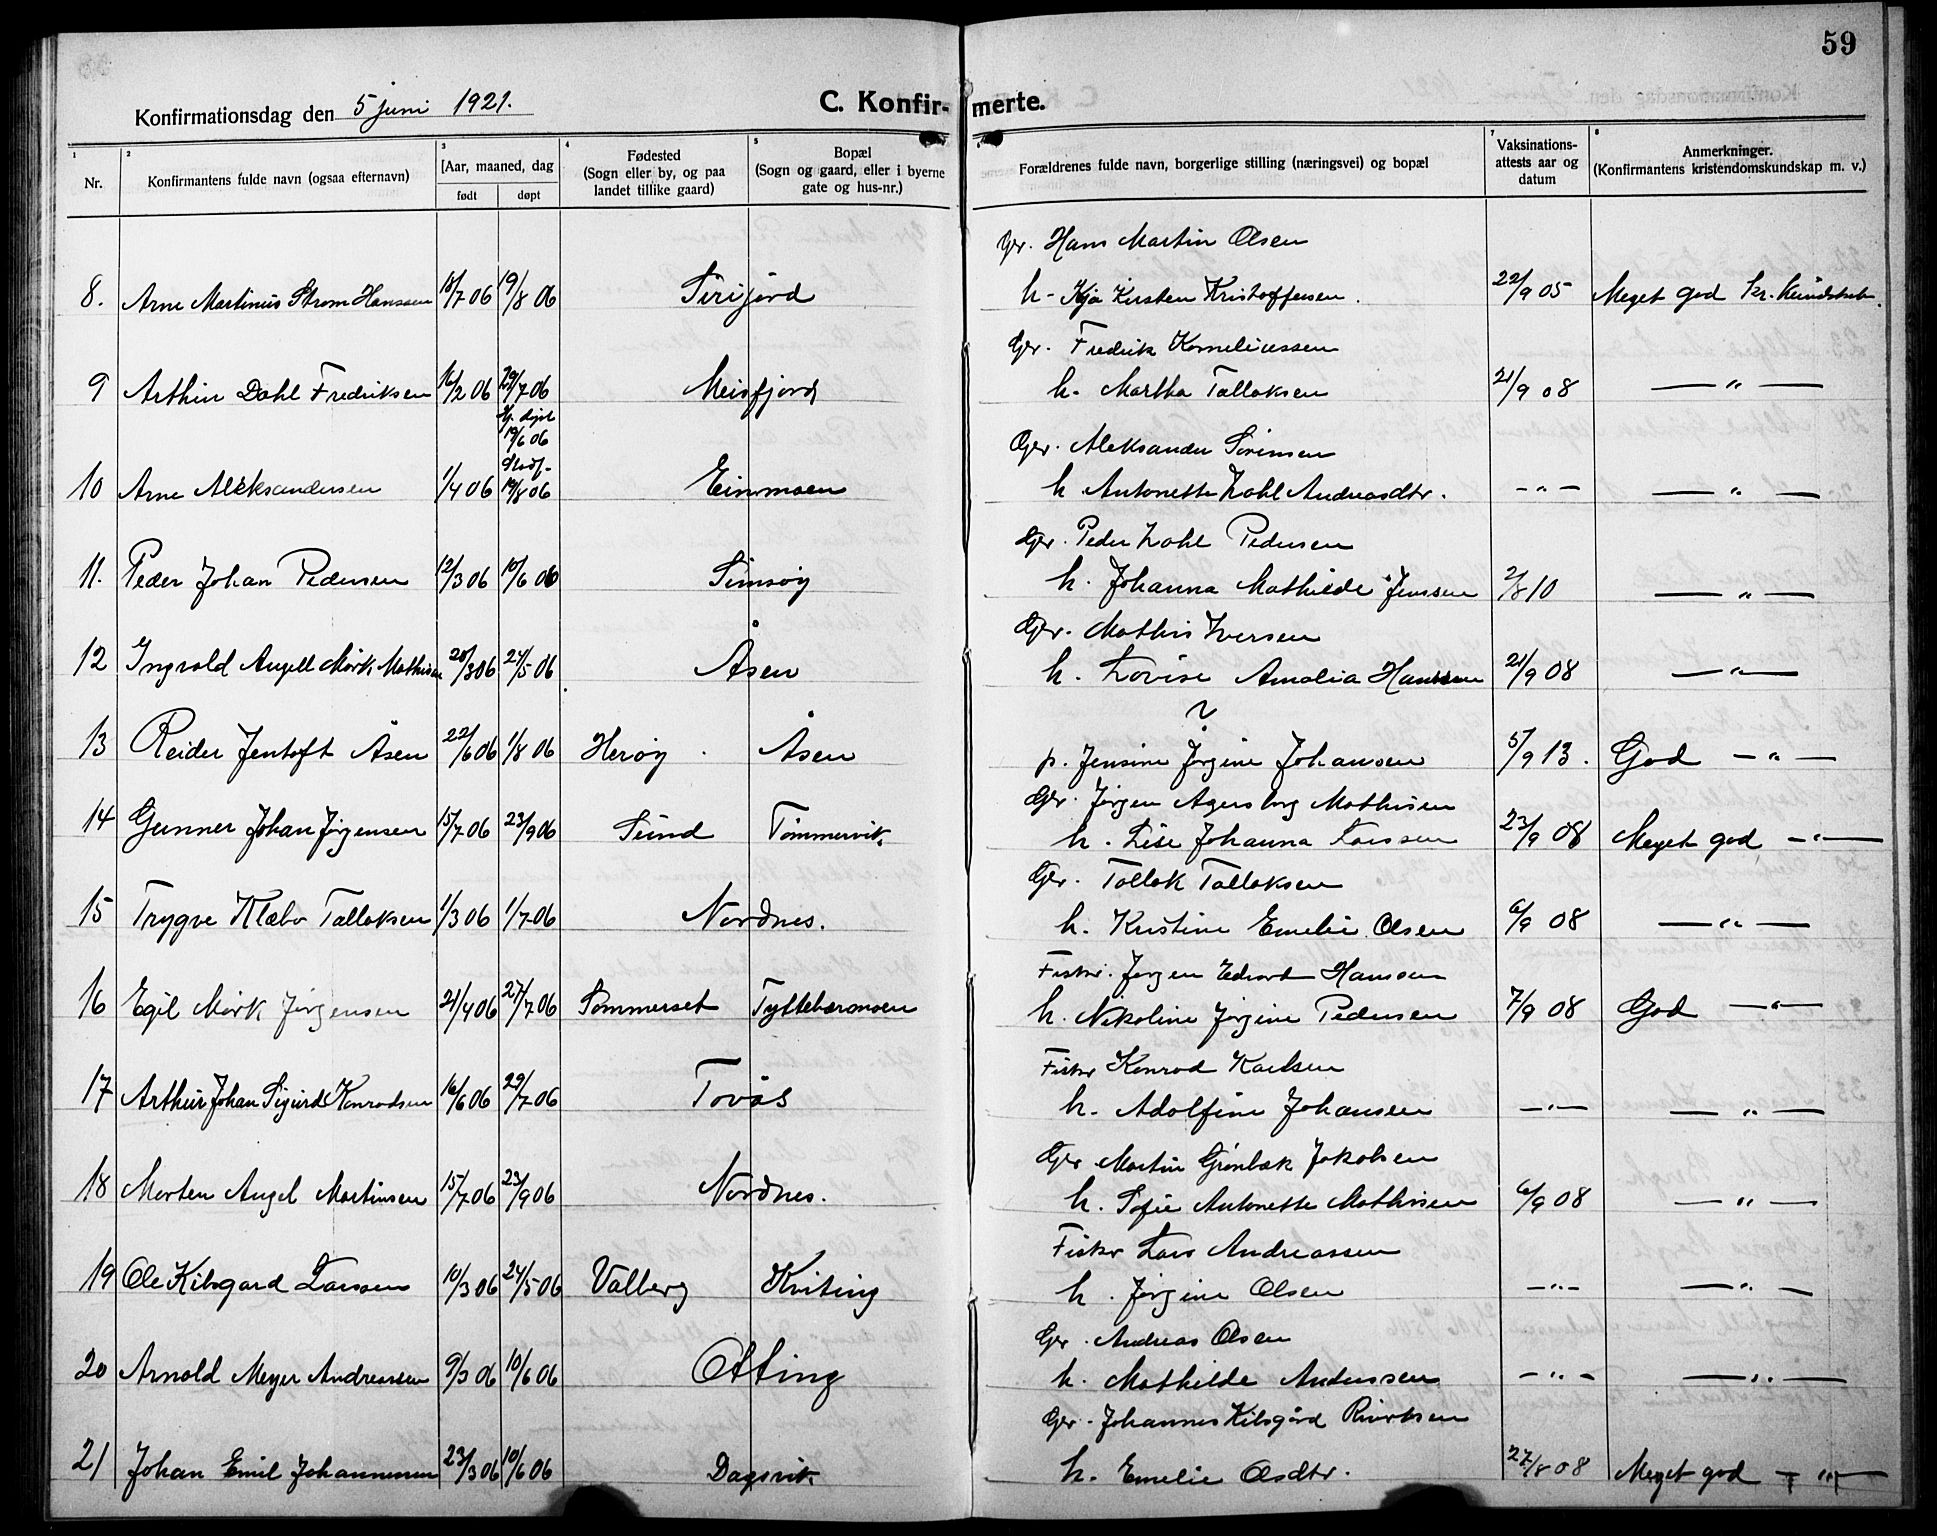 59
Konfirmationsdag den 5 juni 1921.
C. Konfirmerte.
1 2 3 4 5 6 7 8
Nr.
Konfirmantens fulde navn (ogsaa efternavn)
[Aar, maaned, dag
født døpt
Fødested
(Sogn eller by, og paa
landet tillike gaard)
Bopæl
(Sogn og gaard, eller i byerne
gate og hus-nr.)
Forældrenes fulde navn, borgerlige stilling (næringsvei) og bopæl
Vaksinations-
attests aar og
datum
Anmerkninger.
(Konfirmantens kristendomskundskap m. v.)
Gr. Hans Martin Olsen
8. Arne Martinius Strøm Hanssen 18/7 06 19/8 06 Sirijord h- Kirsten Kristoffersen. 22/9 05 Meget god kr. kundskab.
Gr. Fredrik Korneliussen
9 Arthur Dahl Fredriksen 16/2 06 29/7 06 Meisfjord h. Martha Tollaksen 21/9 08 — " —
hj. døpt
19/6 06
Gr. Aleksander Sørensen
10 Arne Aleksandersen 1/4 06 Stadf. 19/8 06 Einmoen h Antonette Zahl Andreasdtr. - " - — " —
Gr. Peder Zahl Pedersen
11. Peder Johan Pedersen 12/3 06 10/6 06 Simsøy h. Johanna Mathilde Jenssen 2/8 10 — " —
Gr. Mathis Iversen
12 Ingvald Angell Mørk Mathisen 20/3 06 24/5 06 Åsen h. Lovise Amalia Hanssen 21/9 08 — " —
?
13 Reider Jentoft Åsen 22/6 06 1/8 06 Herøy. Åsen p. Jensine Jørgine Johansen 5/9 13. God — " —
Gr. Jørgen Agersborg Mathisen
14 Gunner Johan Jørgensen 15/7 06 23/9 06 Sund Tømmervik. h. Lise Johanna Larssen 23/9 08 Meget god — " —
Gr. Tollak Tollaksen
15 Trygve Klæbo Tollaksen 1/3 06 1/7 06 Nordnes. h. Kristine Emelie Olsen 6/9 08 — " —
Fisker. Jørgen Edvard Hanssen
16 Egil Mørk Jørgensen 21/4 06 27/7 06 Sommerset Tyttebærmoen h. Nikoline Jørgine Pedersen 7/9 08 God — " —
Fisker Konrad Karlsen
17 Arthur Johan Sigurd Konradsen 16/6 06 29/7 06 Tovås h. Adolfine Johansen — " — — " —
Gr Martin Grønbæk Jakobsen
18 Morten Angel Martinsen 15/7 06 23/9 06 Nordnes. h. Sofie Antonette Mathisen 6/9 08 — " —
Fisker Lars Andreassen
19 Ole Kibsgard Larssen 10/3 06 24/5 06 Valberg Kviting h. Jørgine Olsen — " — — " —
Gr. Andreas Olsen
20 Arnold Meyer Andreassen 9/3 06 10/6 06 Otting h. Mathilde Anderssen — " — — " —
Gr. Johannes Kibsgård
21 Johan Emil Johannesen 23/3 06 10/6 06 Dagsvik h. Emelie Olsdtr. 27/8 08 Meget god — " —